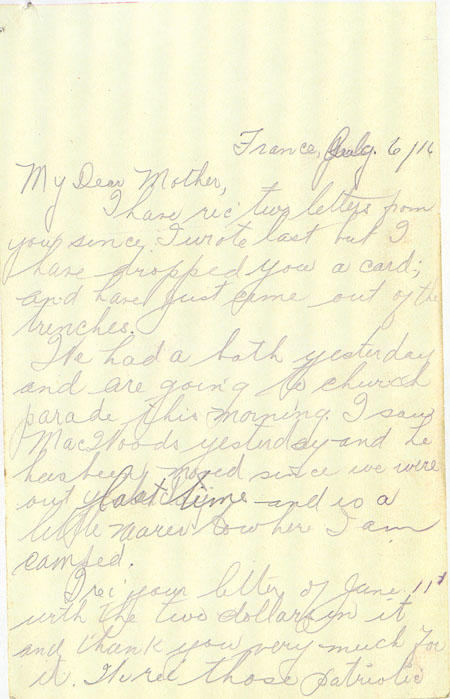 France, July. 6/16
My Dear Mother,
I have rec' two letters from
you since I wrote last but I
have dropped you a card;
and have just come out of the
trenches.
We had a bath yesterday
and are going to church
parade this morning. I saw
Mac Woods yesterday and he
has been moved since we were
out last time and is a
little nearer to where I am
camped.
I rec' your letter of June 11th
with the two dollars in it
and thank you very much for
it. We rec' those patriotic